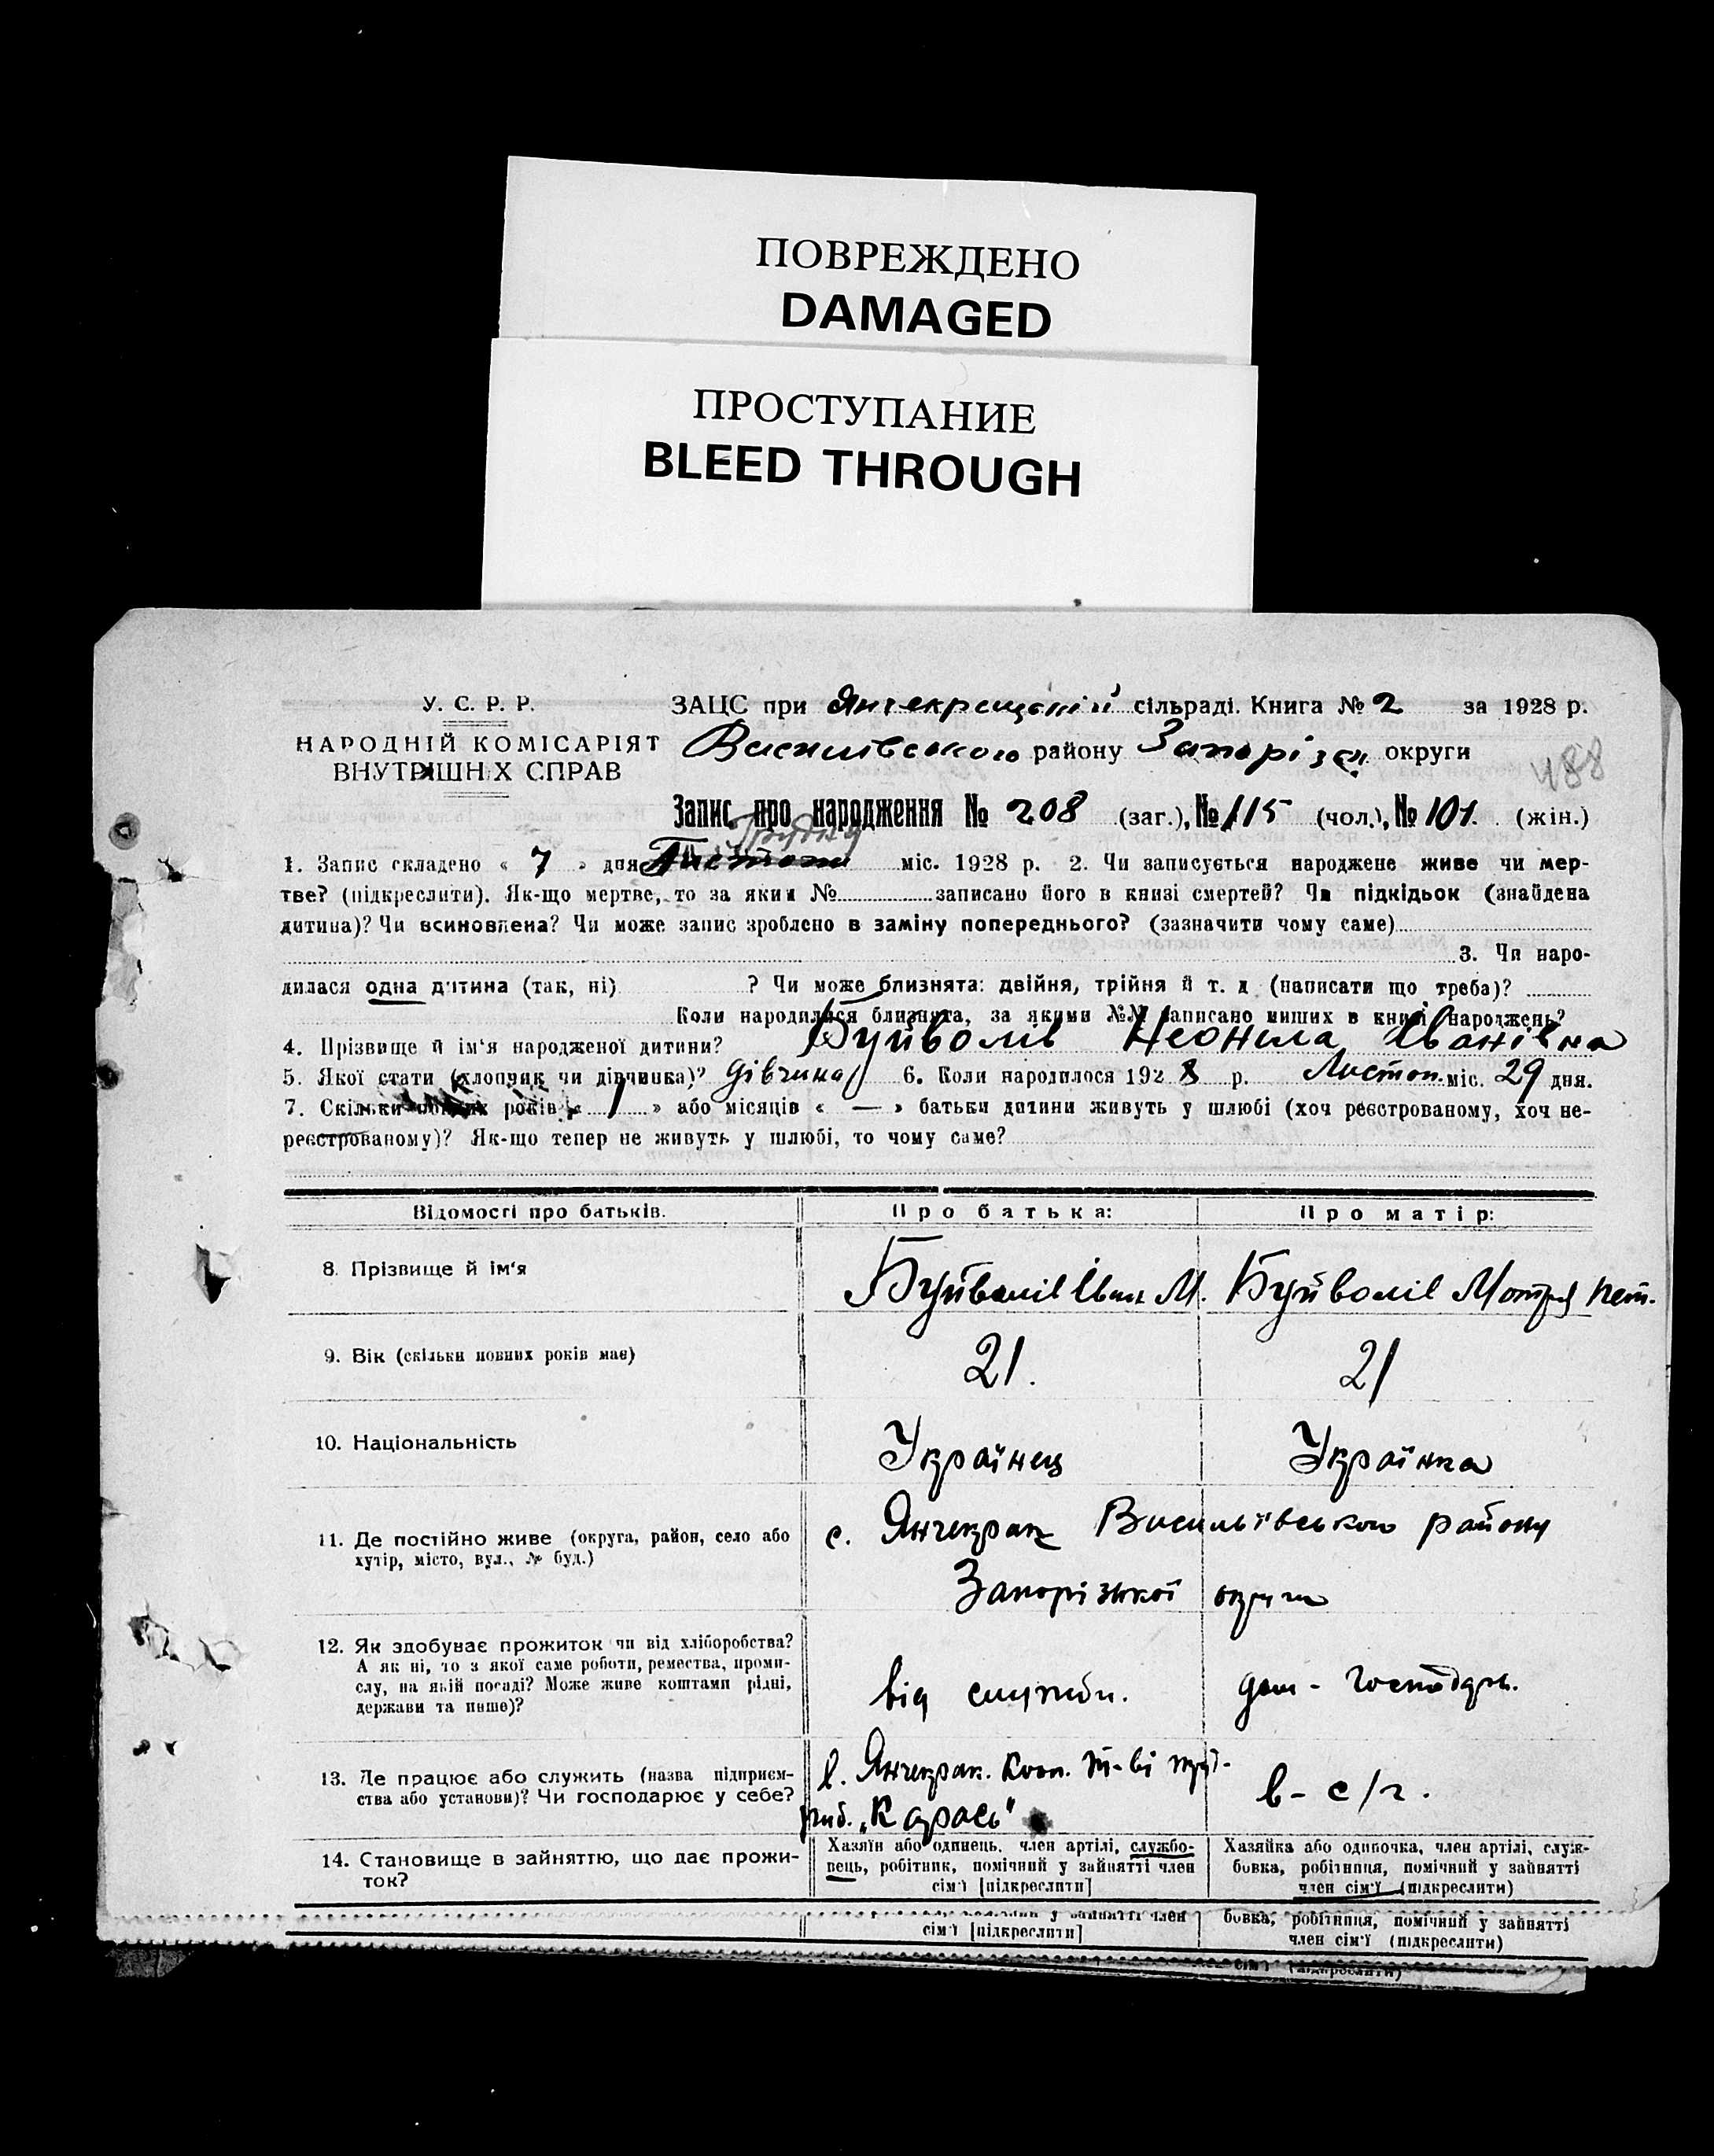 ПОВРЕЖДЕНО
DAMAGED
ПРОСТУПАНИЕ
BLEED THROUGH
У. С. Р. Р.
НАРОДНІЙ КОМІСАРІЯТ
ВНУТРІШНІХ СПРАВ
ЗАЦС при Янчекрацькій сільраді. Книга № 2 за 1928 р.
Василівського району Запорізк. округи
488
Запис про народження № 208 (заг.), № 115 (чол.), № 101. (жін.)
Грудня
1. Запис складено « 7 » дня міс. 1928 р. 2. Чи записується народжене живе чи мер-
тве? (підкреслити). Як-що мертве, то за яким № записано його в книзі смертей? Чи підкідьок (знайдена
дитина)? Чи всиновлена? Чи може запис зроблено в заміну попереднього? (зазначити чому саме)
3. Чи наро-
дилася одна дитина (так, ні) ? Чи може близнята: двійня, трійня й т. д (написати що треба)?
Коли народилися близнята, за якими №№ записано инших в книзі народжень?
4. Прізвище й ім'я народженої дитини? Буйволів Неоніла Іванівна
5. Якої стати (хлопчик чи дівчинка)? дівчина 6. Коли народилося 1928 р. Листоп. міс. 29 дня.
7. Скільки повних років « 1 » або місяців « — » батьки дитини живуть у шлюбі (хоч реєстрованому, хоч не-
реєстрованому)? Як-що тепер не живуть у шлюбі, то чому саме?
Відомості про батьків. Про батька: Про матір:
8. Прізвище й ім'я Буйволів Іван М. Буйволів Мотря Пет.
9. Вік (скільки повних років має) 21. 21
10. Національність Українець Українка
11. Де постійно живе (округа, район, село або
хутір, місто, вул., № буд.)
с. Янчекрак Василівського району
Запорізької округи
12. Як здобуває прожиток чи від хліборобства?
А як ні, то з якої саме роботи, ремества, проми-
слу, на якій посаді? Може живе коштами рідні,
держави та инше)?
від служби. дом-господарь.
13. Де працює або служить (назва підприєм-
ства або установи)? Чи господарює у себе?
в. Янчекрак. Кооп. т-ві
риб. „Карась"
в-с/г.
14. Становище в зайняттю, що дає прожи-
ток?
Хазяїн або одинець, член артілі, службо-
вець, робітник, помічний у зайнятті член
сім'ї [підкреслити]
Хазяйка або одиночка, член артілі, служ-
бовка, робітниця, помічний у зайнятті
член сім'ї (підкреслити)
у зайнятті член
сім'ї [підкреслити]
бовка, робітниця, помічний у зайнятті
член сім'ї (підкреслити)
сім'ї (підкреслити)